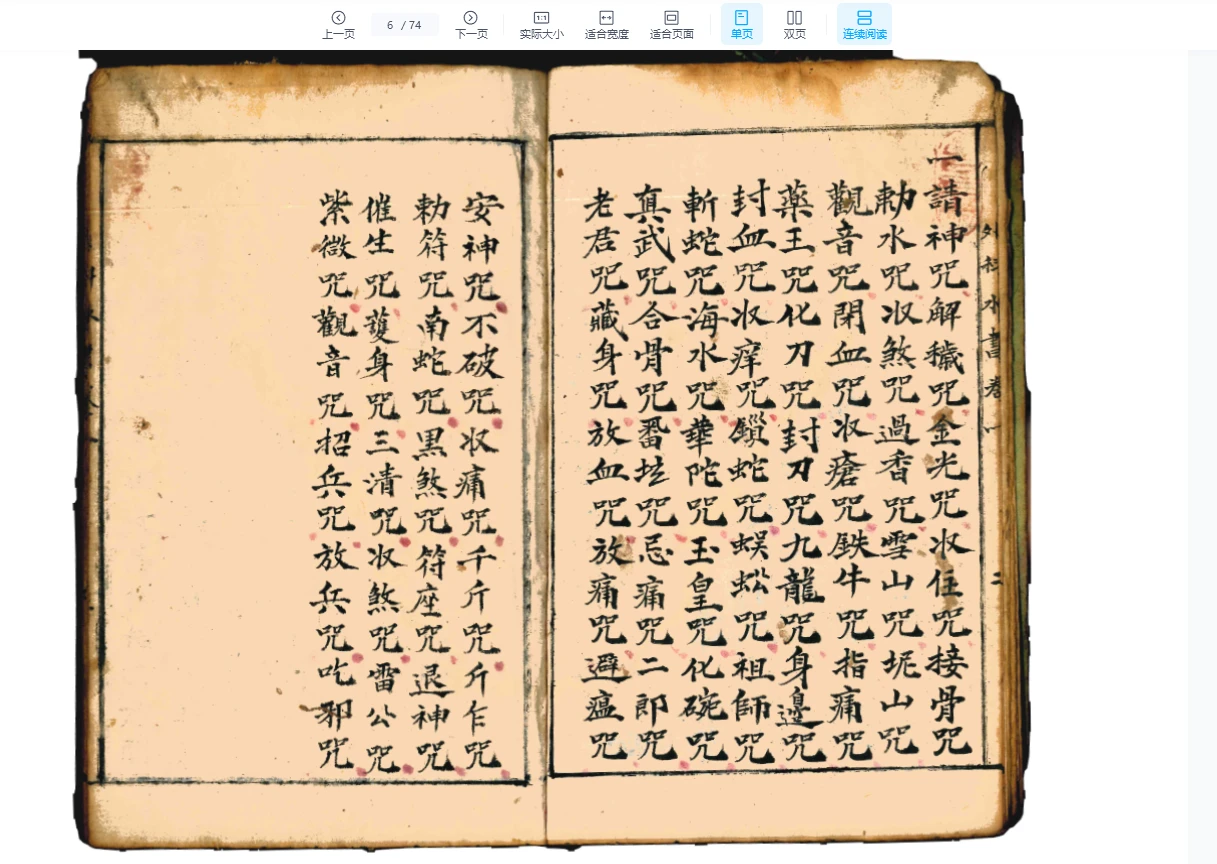 上一页
6 / 74
下一页
1:1
实际大小
适合宽度
适合页面
单页
双页
连续阅读
一請神咒解穢咒金光咒收住咒接骨咒
勅水咒收煞咒過香咒雪山咒坭山咒
觀音咒閉血咒收瘡咒鉄牛咒指痛咒
藥王咒化刀咒封刀咒九龍咒身邊咒
封血咒收痒咒鎖蛇咒蜈蚣咒祖師咒
斬蛇咒海水咒華陀咒玉皇咒化碗咒
真武咒合骨咒番坛咒忌痛咒二郎咒
老君咒藏身咒放血咒放痛咒避瘟咒
安神咒不破咒收痛咒千斤咒斤乍咒
勅符咒南蛇咒黑煞咒符座咒退神咒
催生咒護身咒三清咒收煞咒雷公咒
紫微咒觀音咒招兵咒放兵咒吃邪咒
水書卷一
二